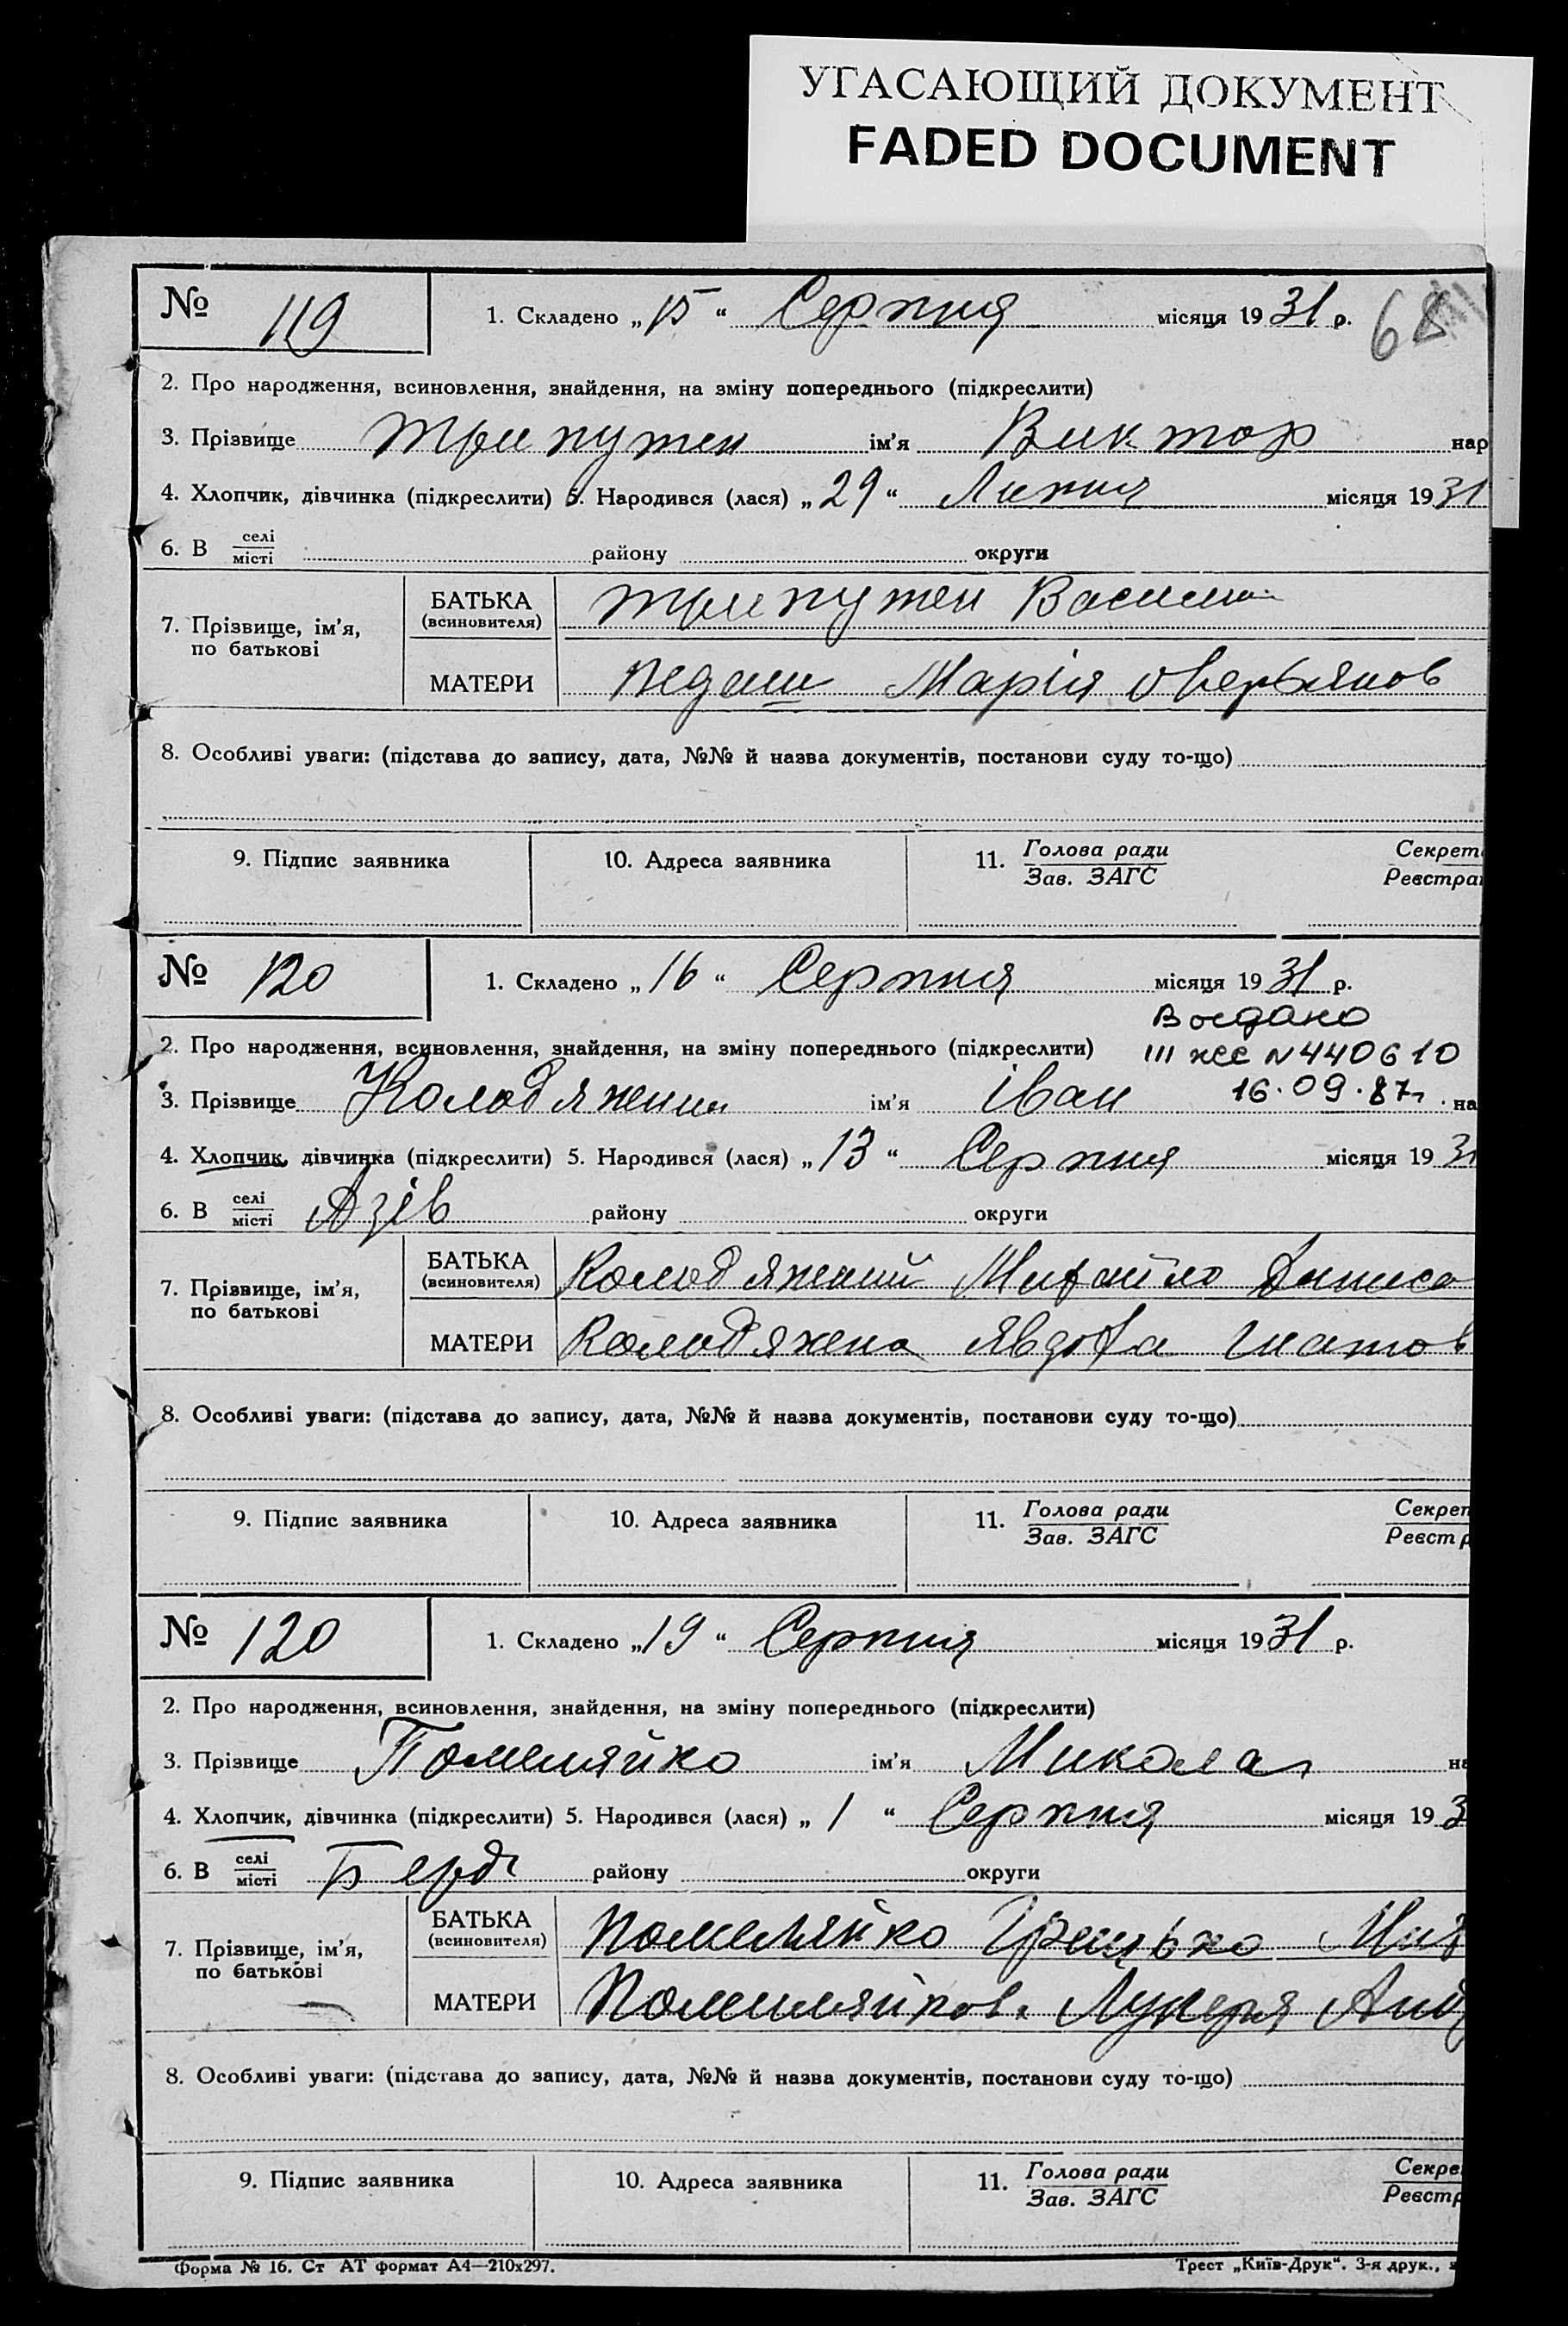 УГАСАЮЩИЙ ДОКУМЕНТ
FADED DOCUMENT
№ 119 1. Складено „15“ Серпня місяця 1931 р. 68
2. Про народження, всиновлення, знайдення, на зміну попереднього (підкреслити)
3. Прізвище Трипутен ім’я Виктор нар
4. Хлопчик, дівчинка (підкреслити) 5. Народився (лася) „29“ Липня місяця 1931
6. В селі/місті району округи
7. Прізвище, ім’я, по батькові
БАТЬКА (всиновителя) Трипутен Василь
МАТЕРИ Марія
8. Особливі уваги: (підстава до запису, дата, №№ й назва документів, постанови суду то-що)
9. Підпис заявника 10. Адреса заявника 11. Голова ради Секрет
Зав. ЗАГС Реєстра
№ 120 1. Складено „16“ Серпня місяця 1931 р.
2. Про народження, всиновлення, знайдення, на зміну попереднього (підкреслити) III N 440610
3. Прізвище ім’я Іван 16.09.87г. на
4. Хлопчик, дівчинка (підкреслити) 5. Народився (лася) „13“ Серпня місяця 1931
6. В селі/місті Азів району округи
7. Прізвище, ім’я, по батькові
БАТЬКА (всиновителя) Колодяжний Михайло Денисо
МАТЕРИ Колодяжна Явдоха
8. Особливі уваги: (підстава до запису, дата, №№ й назва документів, постанови суду то-що)
9. Підпис заявника 10. Адреса заявника 11. Голова ради Секрет
Зав. ЗАГС Реєстр
№ 120 1. Складено „19“ Серпня місяця 1931 р.
2. Про народження, всиновлення, знайдення, на зміну попереднього (підкреслити)
3. Прізвище Помеляйко ім’я Микола на
4. Хлопчик, дівчинка (підкреслити) 5. Народився (лася) „1“ Серпня місяця 193
6. В селі/місті Берд району округи
7. Прізвище, ім’я, по батькові
БАТЬКА (всиновителя) Помеляйко Грицько Мих
МАТЕРИ Помеляйков. Лукеря Анд
8. Особливі уваги: (підстава до запису, дата, №№ й назва документів, постанови суду то-що)
9. Підпис заявника 10. Адреса заявника 11. Голова ради Секре
Зав. ЗАГС Реєстр
Форма № 16. Ст АТ формат А4—210х297. Трест „Київ-Друк“. 3-я друк.,